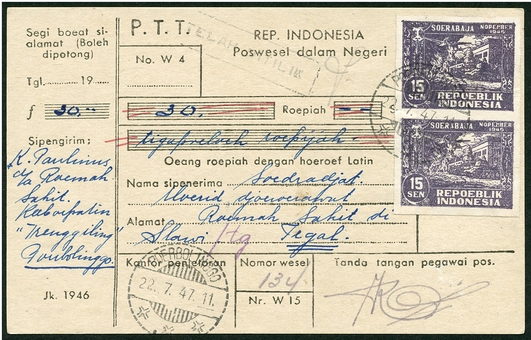 Segi boeat si-
alamat (Boleh
dipotong)
Tgl. 19
f 30,--
Sipengirim :
K. Paulinus
d/a Roemah
Sakit
Kaboepatin
"Trenggiling"
Poerbolinggo.
Jk. 1946
P. T. T.
No. W 4
REP. INDONESIA
Poswesel dalam Negeri
30,- Roepiah --
tigapoeloeh roepijah.
Oeang roepiah dengan hoeroef Latin
Nama sipenerima Soedradjat
djoeroerawat
Alamat Roemah Sakit di
Slawi Tegal.
Kantor penjetoran
POERBOLINGGO
22. 7. 47. 11.
Nomor wesel
134
Nr. W 15
Tanda tangan pegawai pos.
SOERABAJA NOPEMBER 1945
15 SEN
REPOEBLIK INDONESIA
SOERABAJA NOPEMBER 1945
15 SEN
REPOEBLIK INDONESIA
7. 47. 11